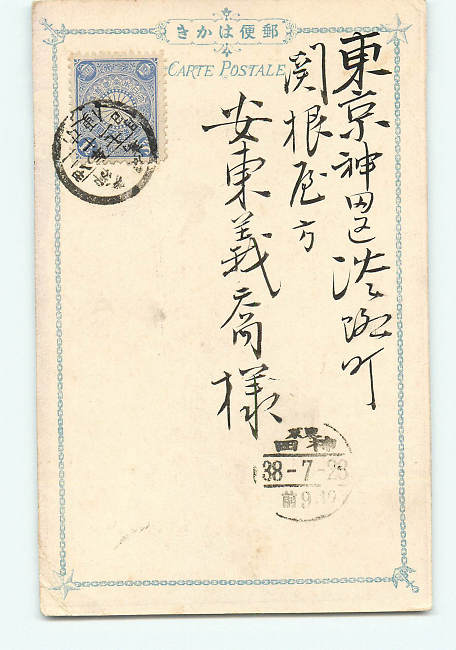 きかは便郵
CARTE POSTALE
東京神田区淡路町
関根屋方
安東義喬様
東京
神田
38-7-23
前9.10